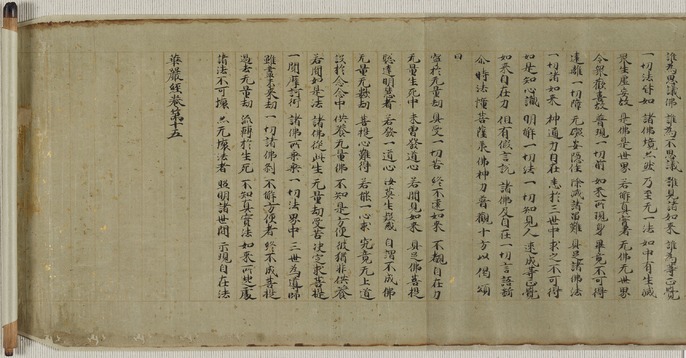 誰為思議佛 誰為不思議 誰見諸如來 誰為等正覺
一切法許如 諸佛境亦然 乃至无一法 如中有生滅
眾生虛妄故 是佛是世界 若解真實者 无佛无世界
令眾歡喜故 普現一切前 如來所現身 畢竟不可得
遠離一切障 无礙妄隨住 除滅諸留難 具足諸佛法
一切諸如來 神通力自在 悉於三世中 求之不可得
如是知心識 明解一切法 一切知見人 速成等正覺
如來自在力 但有假言說 諸佛及自在 一切言語斷
尒時法幢菩薩承佛神力普觀十方以偈頌
曰
寧於无量劫 具受一切苦 終不遠如來 不覩自在力
无量生死中 未曾發道心 若聞見如來 具足佛菩提
聡達明慧者 若發一道心 汝等生疑惑 自謂不成佛
无量无數劫 菩提心難得 若能一心求 究竟无上道
設於念念中 供養无量佛 不知是方便 彼猶非供養
若聞如是法 諸佛從此生 无量劫受苦 決定求菩提
一聞摩訶衍 諸佛所乘乘 一切法界中 三世為導師
雖盡未來劫 一切諸佛剎 不解方便者 終不成菩提
過去无量劫 流轉於生死 不知真實法 如來所以處
諸法不可壞 亦无壞法者 照明諸世間 示現自在法
華嚴經卷第十五